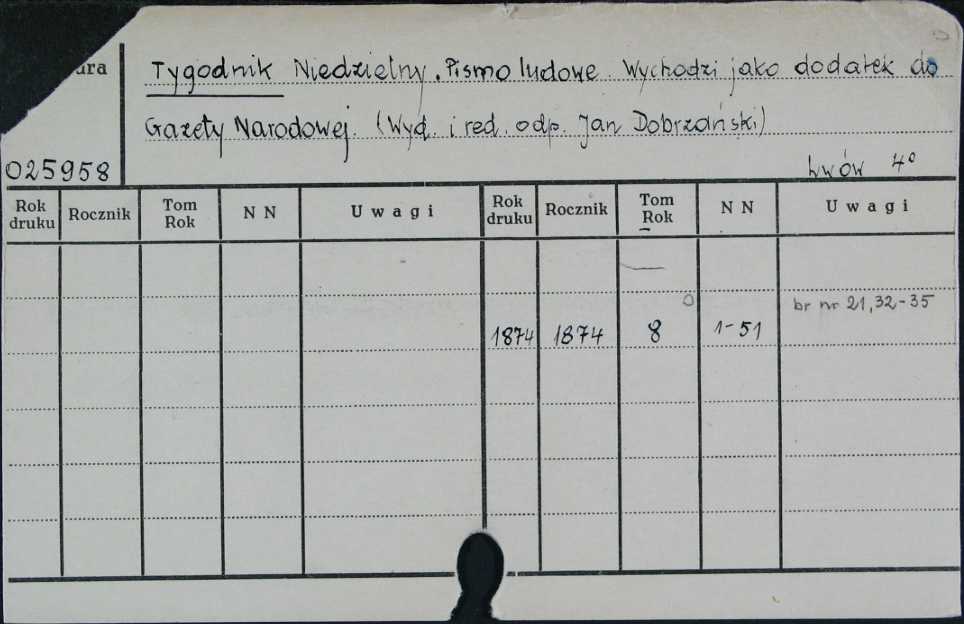 Tygodnik Niedzielny. Pismo ludowe. Wychodzi jako dodatek do
Gazety Narodowej. (Wyd. i red. odp. Jan Dobrzański)
025958
Lwów 4°
Rok druku Rocznik Tom Rok N N Uwagi Rok druku Rocznik Tom Rok N N Uwagi
br nr 21,32-35
1874 1874 8 1-51